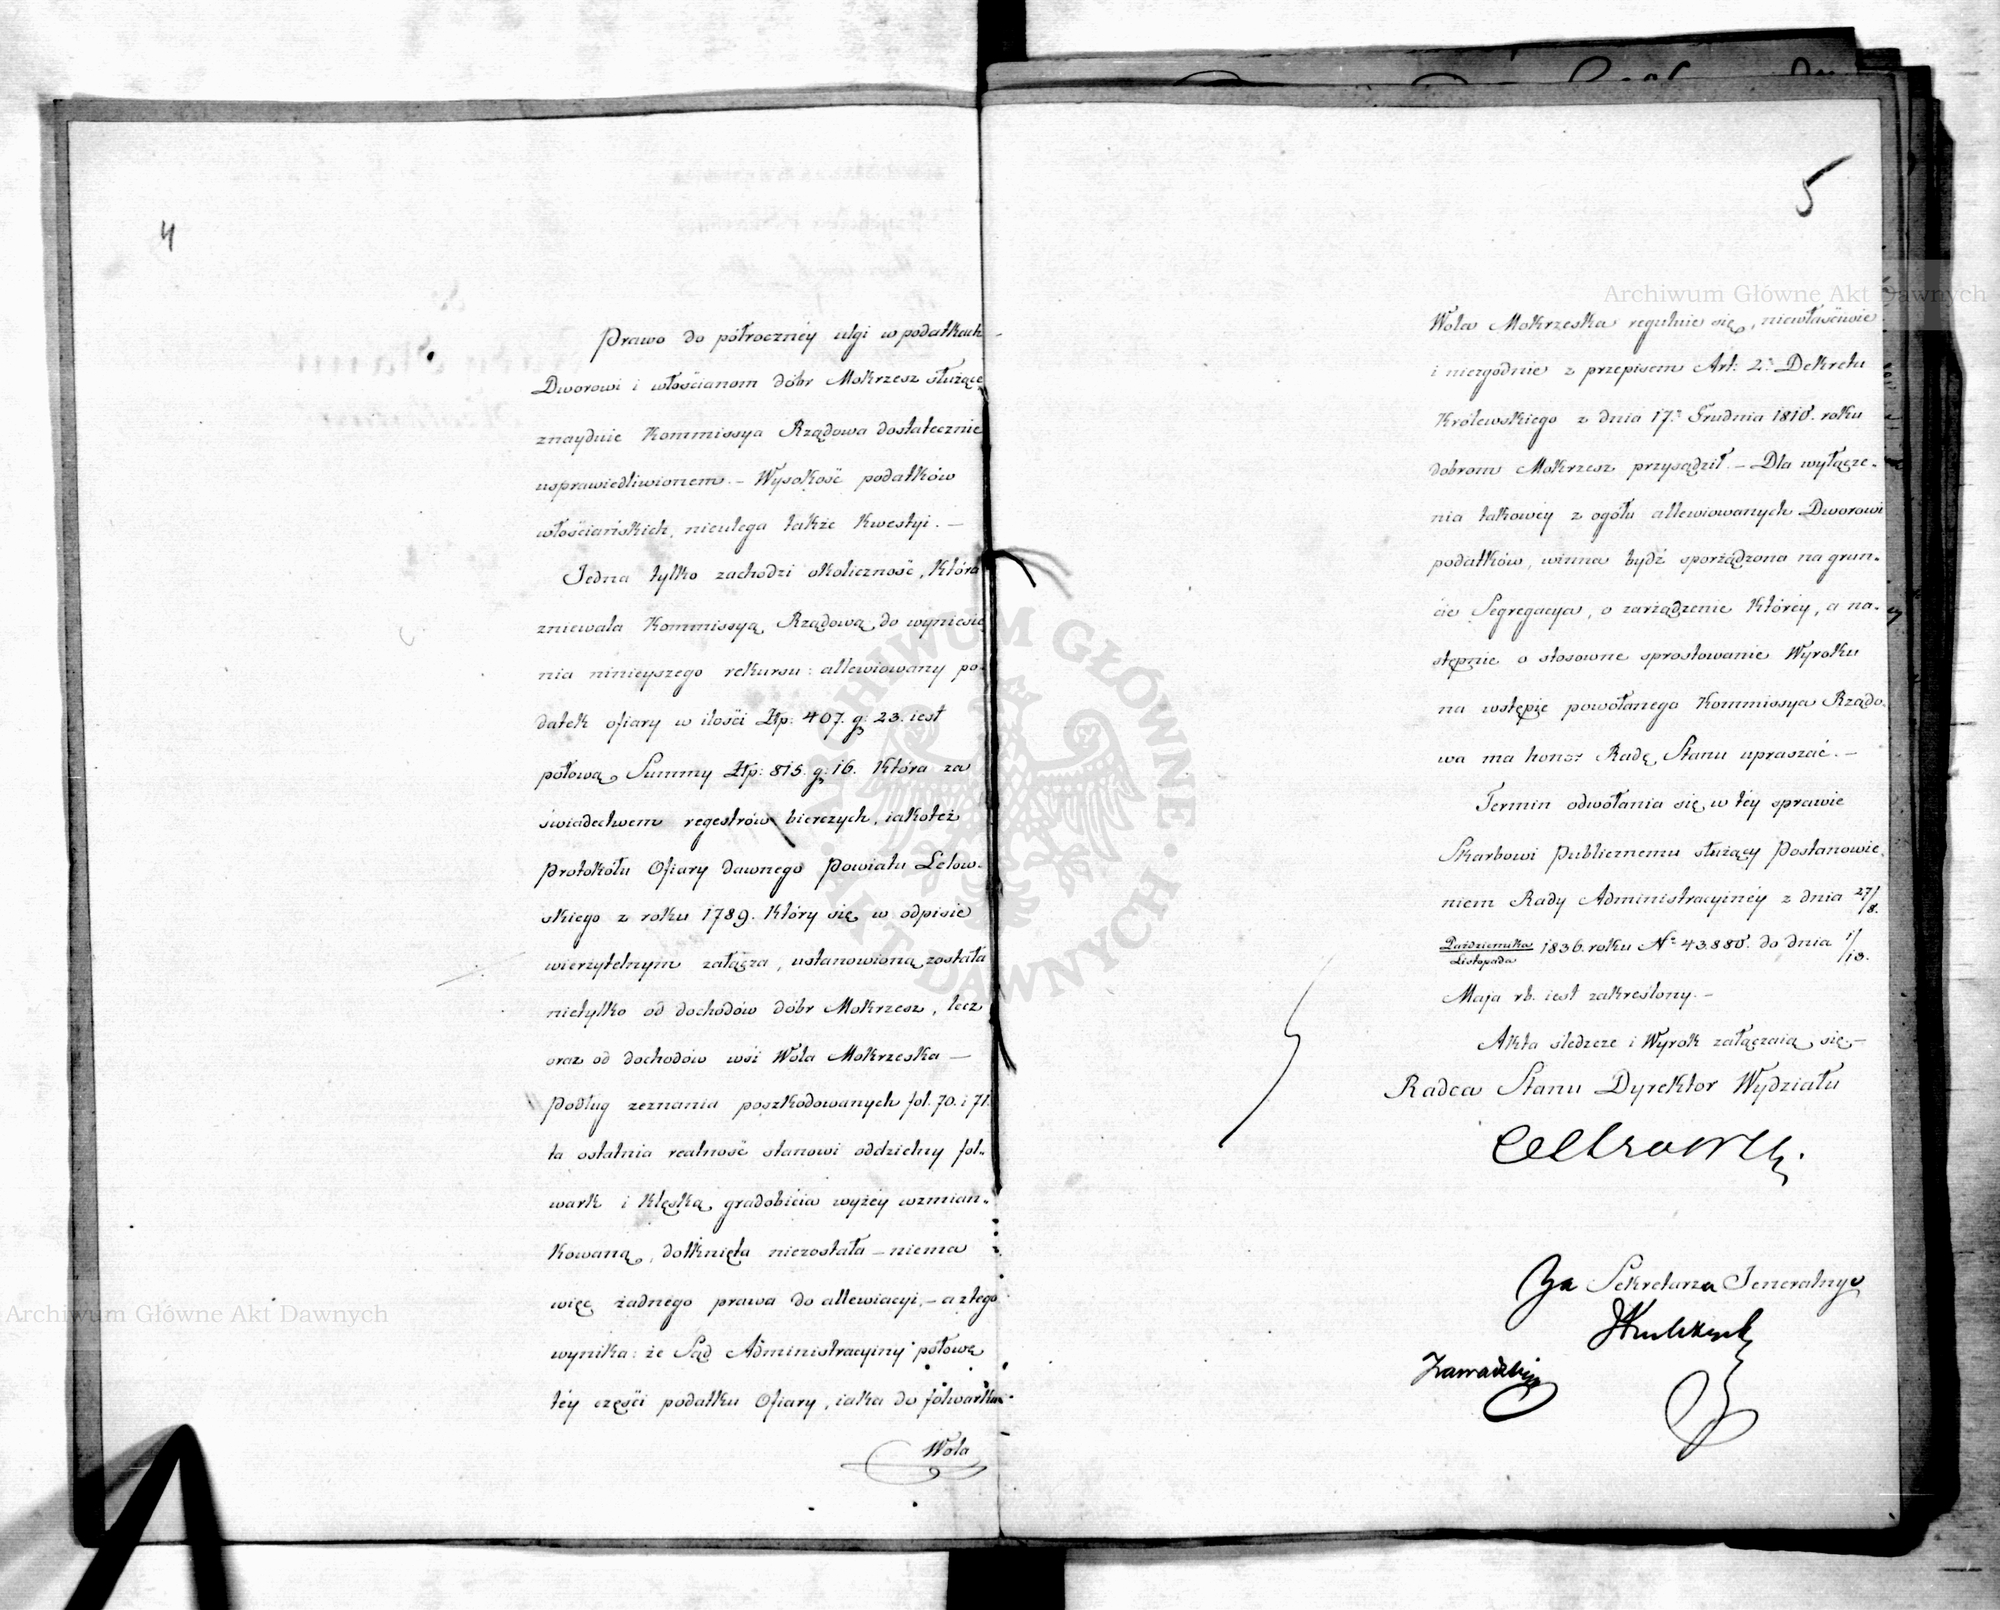 4
Prawo do półrocznéy ulgi w podatkach
Dworowi i włościanom dóbr Mokrzesz służące
znayduie Kommissya Rządowa dostatecznie
usprawiedliwionem. – Wysokość podatków
włościańskich, nieulega także Kwestyi. –
Jedna tylko zachodzi okoliczność, która
zniewala Kommissyą Rządową do wyniesie
nia ninieyszego rekursu: allewiowany po-
datek ofiary w ilości Złp: 407. g: 23. iest
połową Summy Złp: 815. g: 16. Która za
świadectwem regestrów bierczych, iakoteż
Protokółu Ofiary dawnego Powiatu Lelow-
skiego z roku 1789. Który się w odpisie
wierzytelnym załącza, ustanowioną została
nietylko od dochodów dóbr Mokrzesz, lecz
oraz od dochodów wsi Wola Mokrzeska –
Podług zeznania poszkodowanych fol. 70. i 71.
ta ostatnia realność stanowi oddzielny fol-
wark i klęską gradobicia wyżéy wzmian-
kowaną, dotknięta niezostała – niema
więc żadnego prawa do allewiacyi, – a ztego
wynika: że Sąd Administracyiny połowę
téy części podatku Ofiary, iaka do folwarku
Wola
5
Wola Mokrzeska reguluie się, niewłaściwie
i niezgodnie z przepisem Art: 2º Dekretu
Królewskiego z dnia 17º Grudnia 1810. roku
dobrom Mokrzesz przysądził. – Dla wyłącze-
nia takowéy z ogółu allewiowanych Dworowi
podatków, winna bydź sporządzona na grun-
cie Segregacya, o zarządzenie Któréy, a na-
stępnie o stosowne sprostowanie Wyroku
na wstępie powołanego Kommissya Rządo-
wa ma honor Radę Stanu upraszać. –
Termin odwołania się w téy sprawie
Skarbowi Publicznemu służący Postanowie-
niem Rady Administracyinéy z dnia 27/8.
Października/Listopada 1836. roku Nº 43.880. do dnia 1/13.
Maja rb. iest zakreślony. –
Akta śledcze i Wyrok załączaią się –
Radca Stanu Dyrektor Wydziału
Za Sekretarza Jeneralnego
Zawadzki
Archiwum Główne Akt Dawnych
Archiwum Główne Akt Dawnych
ARCHIWUM GŁÓWNE AKT DAWNYCH